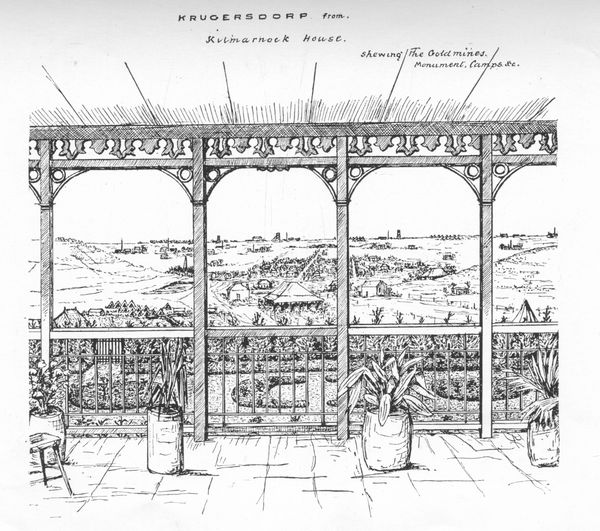 KRUGERSDORP from.
Kilmarnock House.
shewing The Goldmines.
Monument, Camps &c.